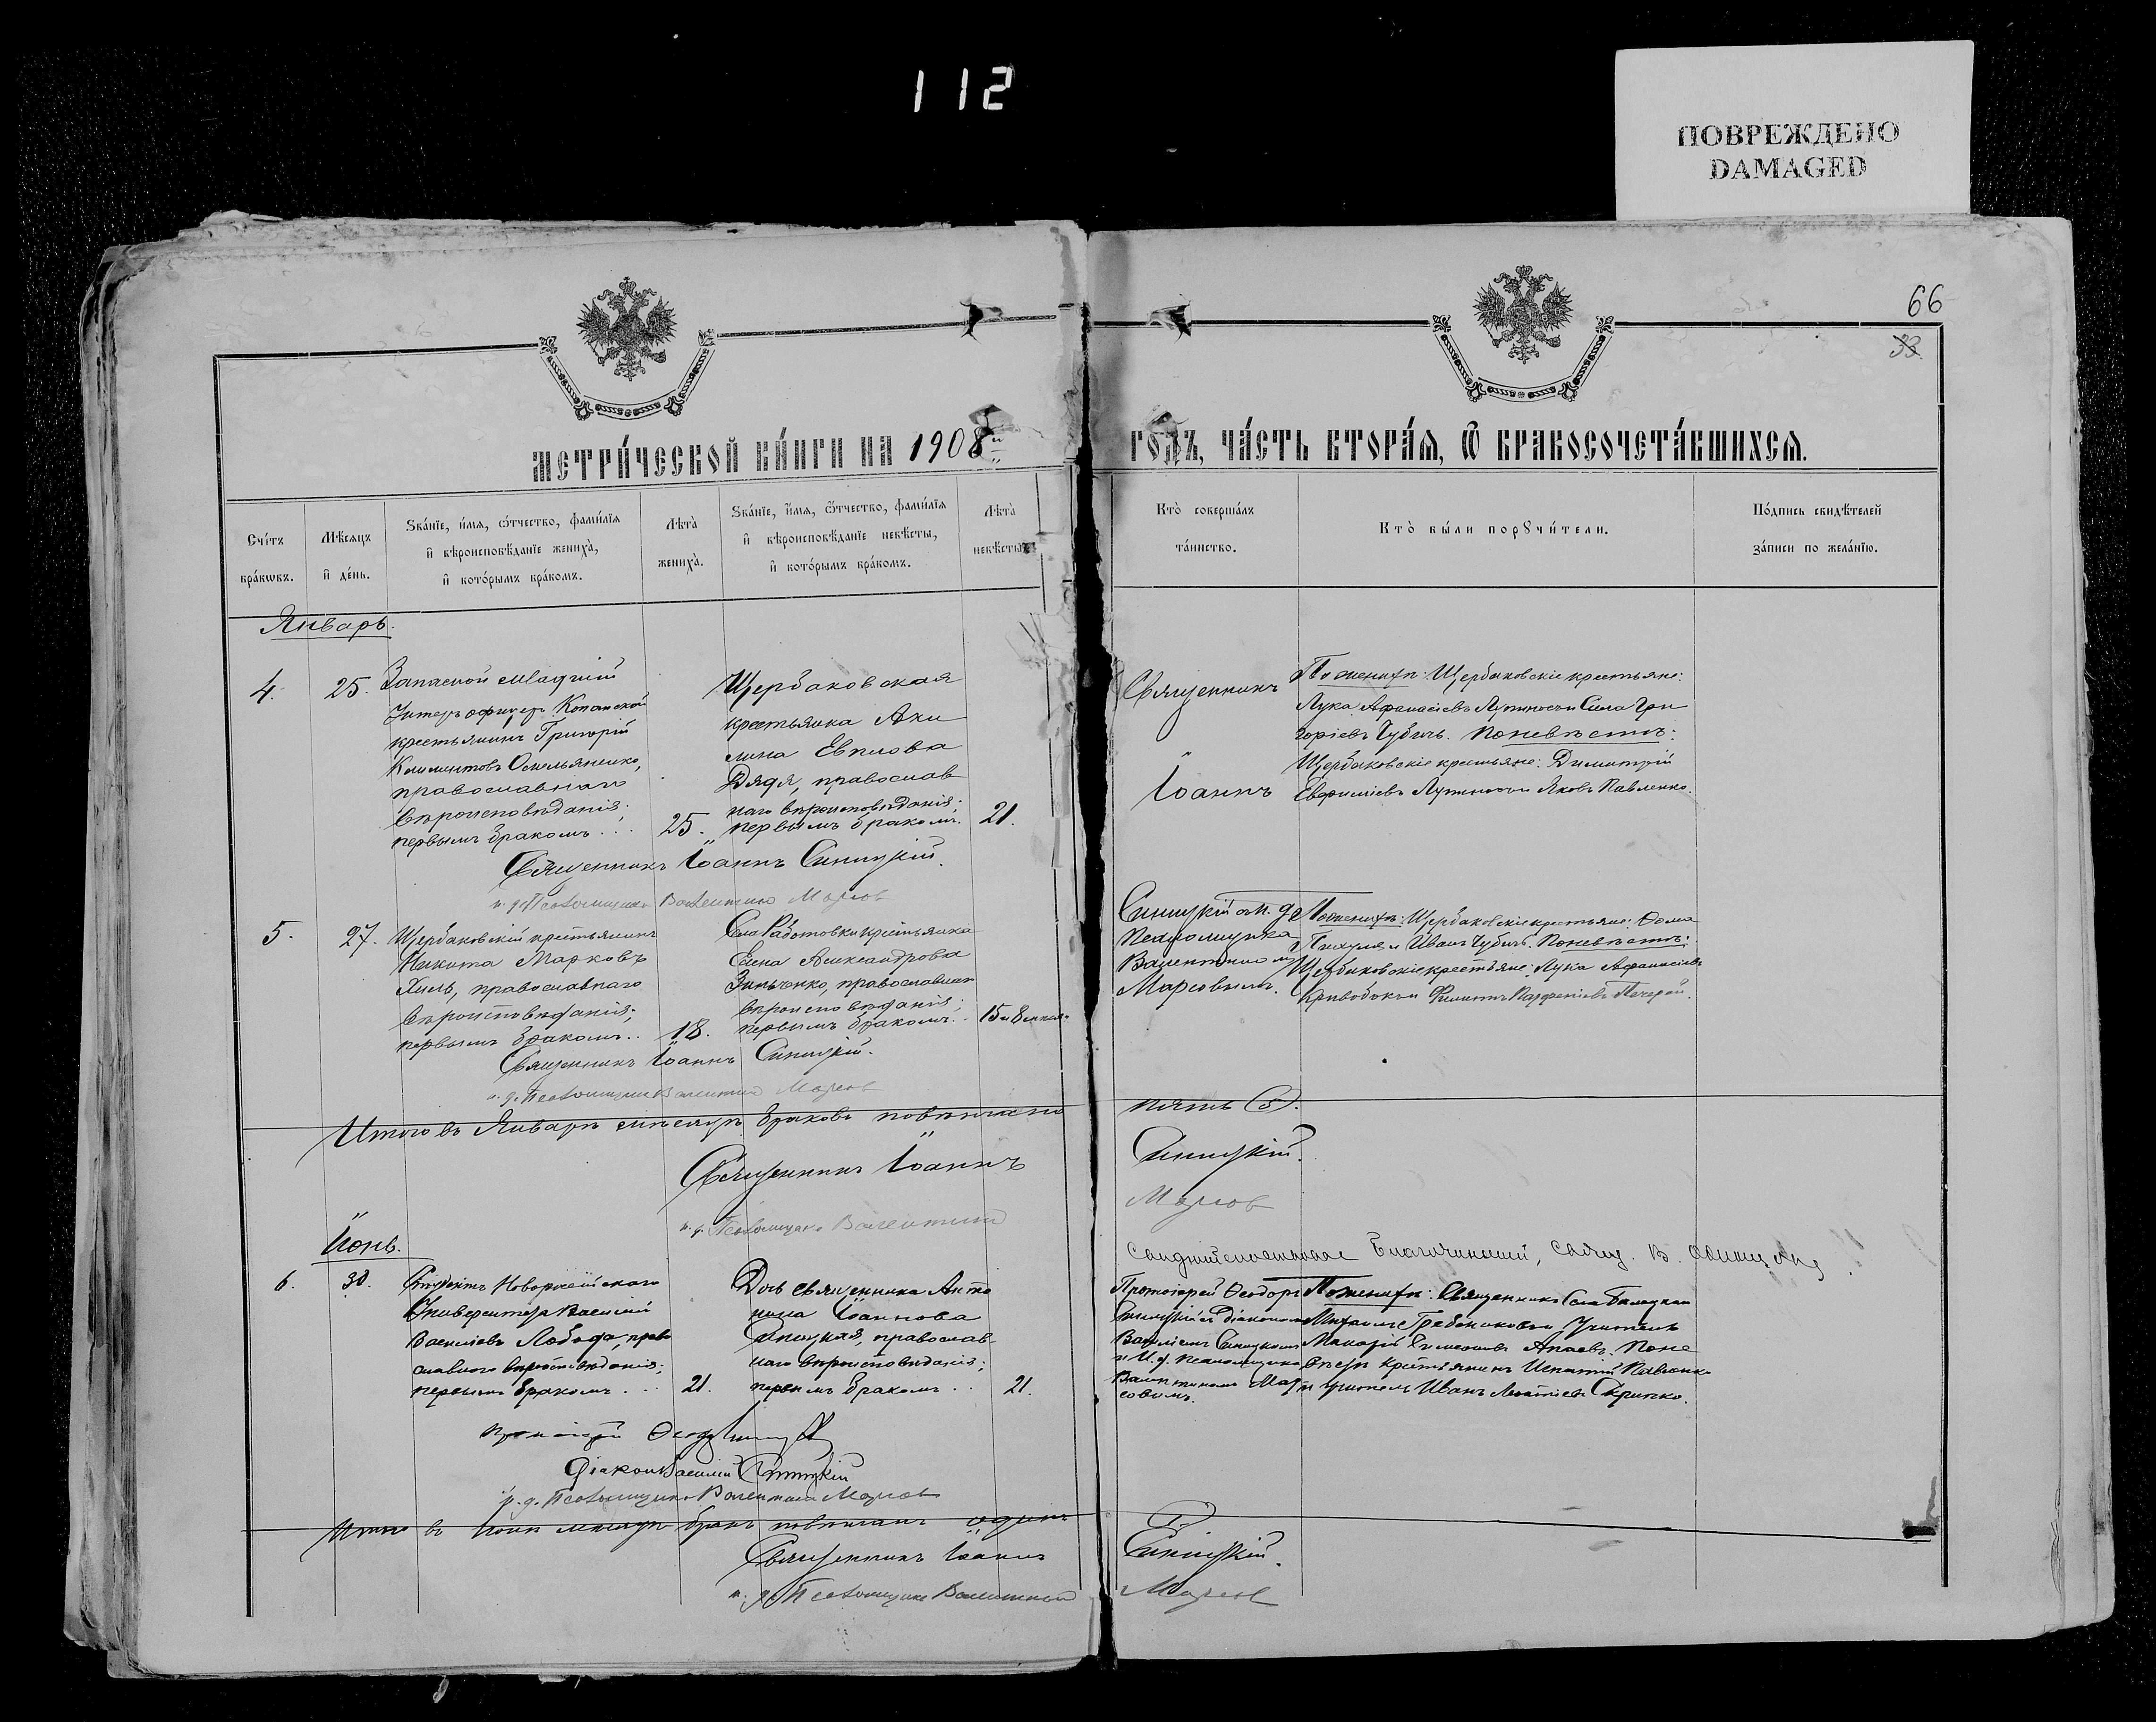 112
ПОВРЕЖДЕНО
DAMAGED
66
33.
МЕТРИ́ЧЕСКОЙ КНИ́ГИ НА 1908й
ГОДЪ, ЧА́СТЬ ВТОРА́Я, Ѿ БРАКОСОЧЕТА́ВШИХСЯ.
Сче́тъ бра́кωвъ.
Мѣ́сяцъ и де́нь.
Зва́нїе, и́мя, ѻ́тчество, фами́лїя и вѣроисповѣ́данїе жениха̀, и кото́рымъ бра́комъ.
Лѣта̀ жениха̀.
Зва́нїе, и́мя, ѻ́тчество, фами́лїя и вѣроисповѣ́данїе невѣ́сты, и кото́рымъ бра́комъ.
Лѣта̀ невѣ́сты.
Кто̀ соверша́лъ та́инство.
Кто̀ бы́ли порꙋчи́тели.
По́дпись свидѣ́телей за́писи по жела́нїю.
Январь.
4.
25.
Запасной младшій
Унтеръ офицеръ Копанской
крестьянинъ Григорій
Климентовъ Омельяненко,
православнаго
вѣроисповѣданія;
первымъ бракомъ...
25.
Щербаковская
крестьянка Аки
лина Евплова
Дядя, православ
наго вѣроисповѣданія;
первымъ бракомъ.
21.
Священникъ
Іоаннъ
По женихѣ: Щербаковскіе крестьяне:
Лука Афанасіевъ и Сила Гри
горіевъ Чубичъ. По невѣстѣ:
Щербаковскіе крестьяне: Димитрій
Евфиміевъ и Яковъ Павленко.
Священникъ Іоаннъ Синицкій.
и. д. Псаломщика Валентинъ Марсов
5.
27.
Щербаковскій крестьянинъ
Никита Марковъ
Хиль, православнаго
вѣроисповѣданія;
первымъ бракомъ..
18.
Села Работовки крестьянка
Елена Александрова
Зинченко, православнаго
вѣроисповѣданія;
первымъ бракомъ.
15 и 8 мѣсяц.
Синицкій съ и. д.
Псаломщика
Валентиномъ
Марсовымъ.
По женихѣ: Щербаковскіе крестьяне: Ѳома
и Иванъ Чубичъ. По невѣстѣ:
Щербаковскіе крестьяне: Лука Афанасіевъ
Кривобокъ и Филиппъ Парфеніевъ
Священникъ Іоаннъ Синицкій.
и. д. Псаломщика Валентинъ Марсов
Итого въ Январѣ мѣсяцѣ браковъ повѣнчано
пять (5).
Священникъ Іоаннъ
Синицкій.
и. д. Псаломщика Валентинъ
Марсов
Іюнь.
Благочинный, Свящ. В.
6.
30.
Студентъ Новороссійскаго
Университета Василій
Василіевъ Лобода, право
славнаго вѣроисповѣданія;
первымъ бракомъ...
21.
Дочь священника Анто
нина Іоаннова
Синицкая, православ
наго вѣроисповѣданія;
первымъ бракомъ..
21.
Протоіерей Ѳеодоръ
Синицкій съ Діакономъ
Василіемъ Синицкимъ
и И. д. псаломщика
Валентиномъ Мар
совымъ.
По женихѣ: Священникъ Села
Михаилъ Гребенниковъ и Учитель
Макарій Симеоновъ Апаевъ. По не
вѣстѣ крестьянинъ Игнатій Павленко
и учитель Иванъ Скрипко.
Протоіерей Ѳеодоръ
Діаконъ Василій Синицкій
и. д. Псаломщика Валентинъ Марсов
Итого въ Іюнѣ мѣсяцѣ бракъ повѣнчанъ одинъ
Священникъ Іоаннъ
Синицкій.
и. д. Псаломщика Валентинъ
Марсов